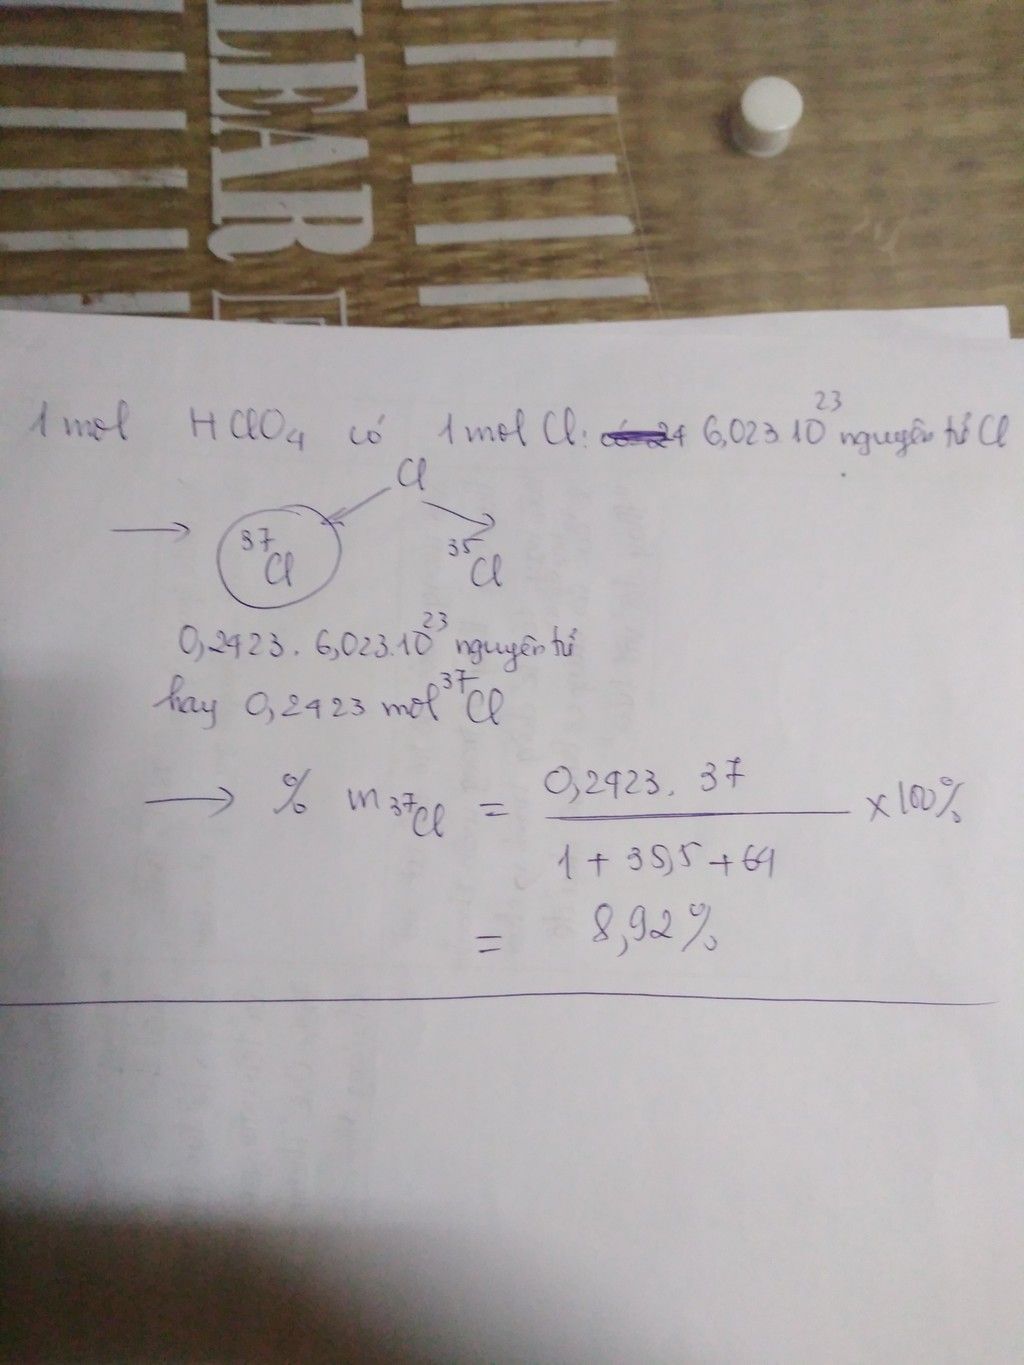 LEAR
1 mol HClO4 có 1 mol Cl: 6,023.10^23 nguyên tử Cl
Cl
→ 37Cl 35Cl
0,2423. 6,023.10^23 nguyên tử
hay 0,2423 mol 37Cl
→ % m 37Cl = 0,2423. 37 / 1 + 35,5 + 64 × 100%
= 8,92%